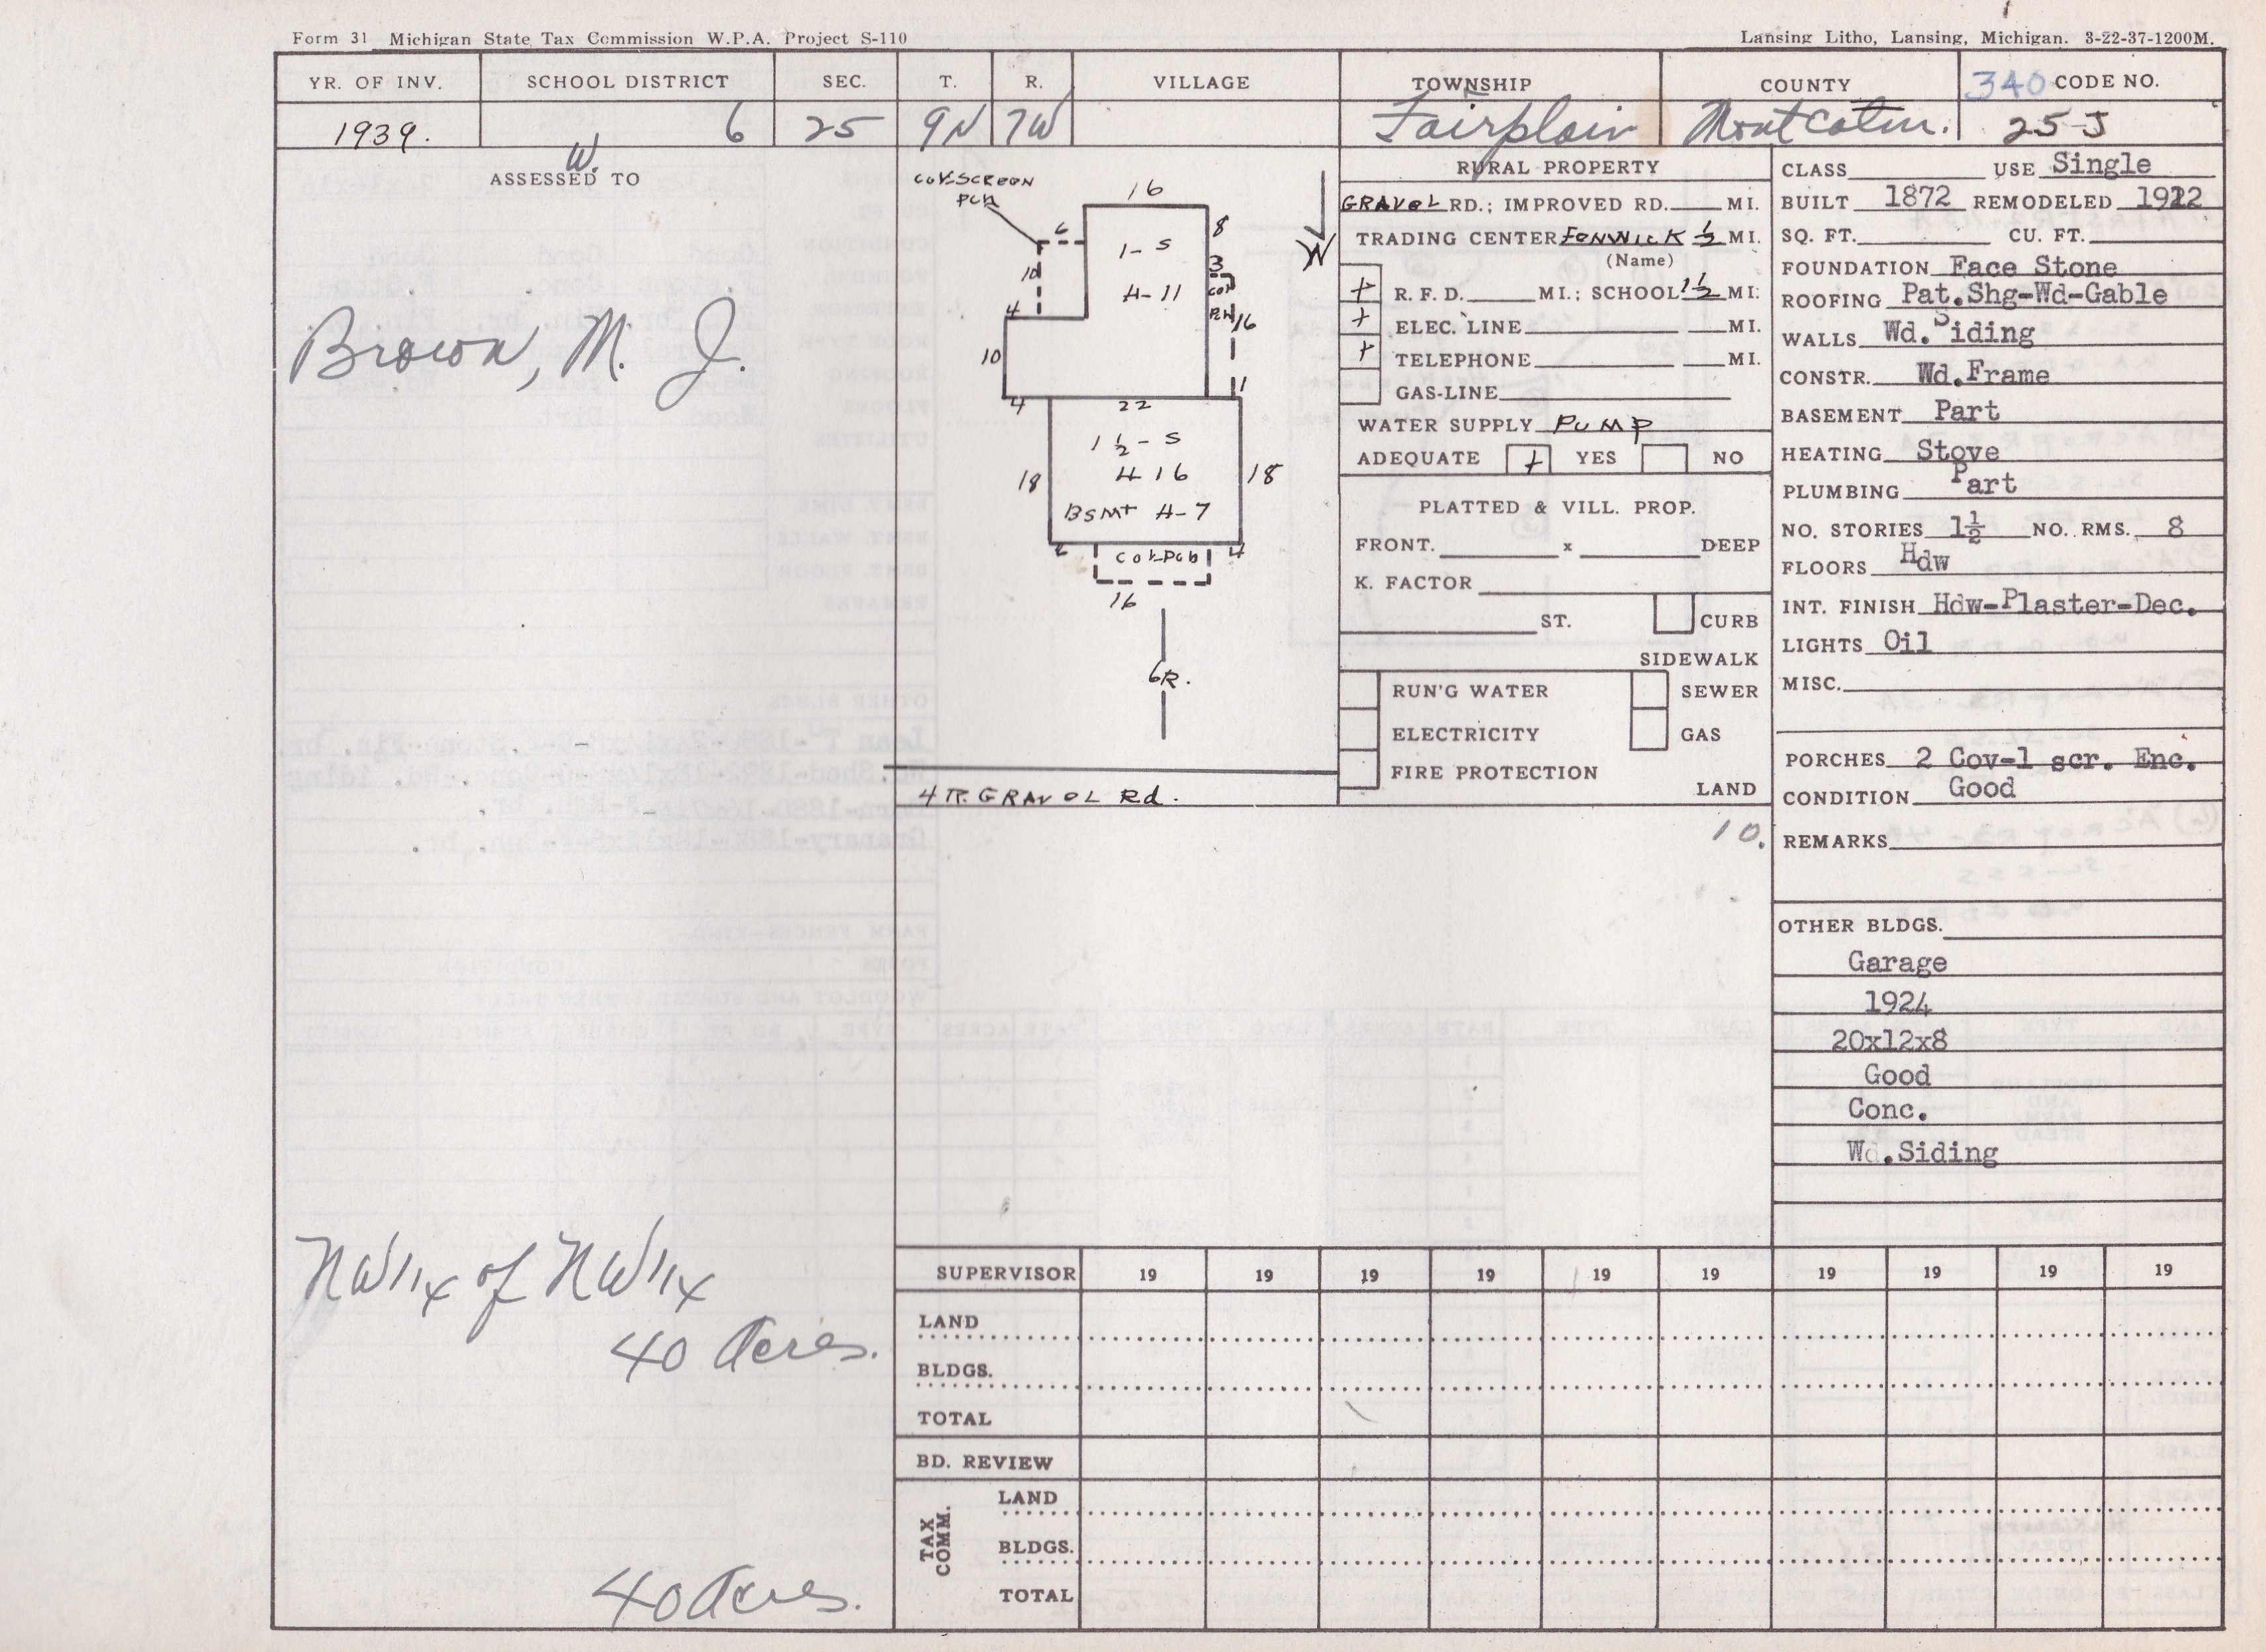 Form 31 Michigan State Tax Commission W.P.A. Project S-110
Lansing Litho, Lansing, Michigan. 3-22-37-1200M.
YR. OF INV. SCHOOL DISTRICT SEC. T. R. VILLAGE TOWNSHIP COUNTY 340 CODE NO.
1939. 6 25 9N 7W Fairplain Montcalm. 25-J
W.
ASSESSED TO
Brown, M. J.
NW 1/4 of NW 1/4
40 Acres.
40 Acres.
COV. SCREEN
PCH
16
6
8
1-S
10
3
H-11
COV
PCH
16
4
10
1
4
22
1 1/2-S
18
H 16
18
BSMT H-7
2
COV PCH
4
16
6R.
4 R. GRAVEL Rd.
N
RURAL PROPERTY
GRAVEL RD.; IMPROVED RD. MI.
TRADING CENTER FENWICK 1/2 MI.
(Name)
+ R. F. D. MI.; SCHOOL 1 1/2 MI.
+ ELEC. LINE MI.
+ TELEPHONE MI.
GAS-LINE
WATER SUPPLY PUMP
ADEQUATE + YES NO
PLATTED & VILL. PROP.
FRONT. x DEEP
K. FACTOR
ST. CURB
SIDEWALK
RUN'G WATER SEWER
ELECTRICITY GAS
FIRE PROTECTION
LAND
10.
CLASS USE Single
BUILT 1872 REMODELED 1912
SQ. FT. CU. FT.
FOUNDATION Face Stone
ROOFING Pat.Shg-Wd-Gable
WALLS Wd. Siding
CONSTR. Wd.Frame
BASEMENT Part
HEATING Stove
PLUMBING Part
NO. STORIES 1½ NO. RMS. 8
FLOORS Hdw
INT. FINISH Hdw-Plaster-Dec.
LIGHTS Oil
MISC.
PORCHES 2 Cov-1 scr. Enc.
CONDITION Good
REMARKS
OTHER BLDGS.
Garage
1924
20x12x8
Good
Conc.
Wd.Siding
SUPERVISOR 19 19 19 19 19 19 19 19 19 19
LAND
BLDGS.
TOTAL
BD. REVIEW
TAX COMM.
LAND
BLDGS.
TOTAL